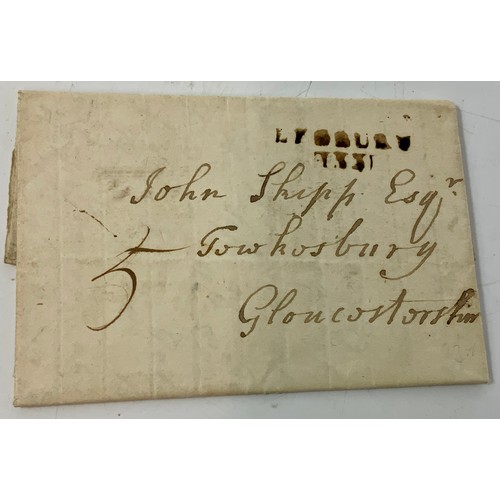 LEDBURY
John Shipp Esqr.
5
Tewkesbury
Gloucestershire